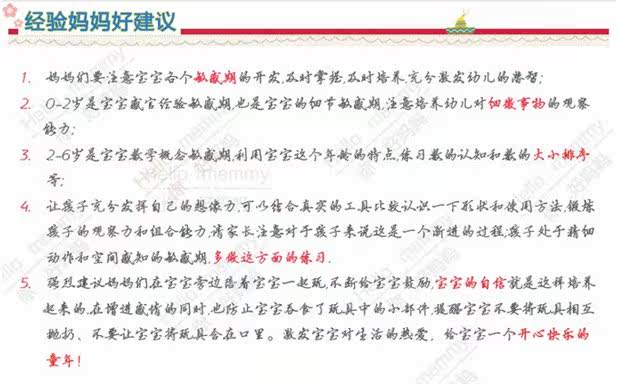 经验妈妈好建议
1. 妈妈们要注意宝宝各个敏感期的开发,及时掌握,及时培养,充分激发幼儿的潜智;
2. 0-2岁是宝宝感官经验敏感期,也是宝宝的细节敏感期,注意培养幼儿对细微事物的观察
能力;
3. 2-6岁是宝宝数学概念敏感期,利用宝宝这个年龄的特点,练习数的认知和数的大小排序
等;
4. 让孩子充分发挥自己的想像力,可以结合真实的工具比较认识一下形状和使用方法,锻炼
孩子的观察力和组合能力,请家长注意对于孩子来说这是一个渐进的过程;孩子处于精细
动作和空间感知的敏感期,多做这方面的练习.
5. 强烈建议妈妈们在宝宝旁边陪着宝宝一起玩,不断给宝宝鼓励,宝宝的自信就是这样培养
起来的,在增进感情的同时,也防止宝宝吞食了玩具中的小部件,提醒宝宝不要将玩具相互
抛扔、不要让宝宝将玩具含在口里。激发宝宝对生活的热爱,给宝宝一个开心快乐的
童年!
Hello memmy